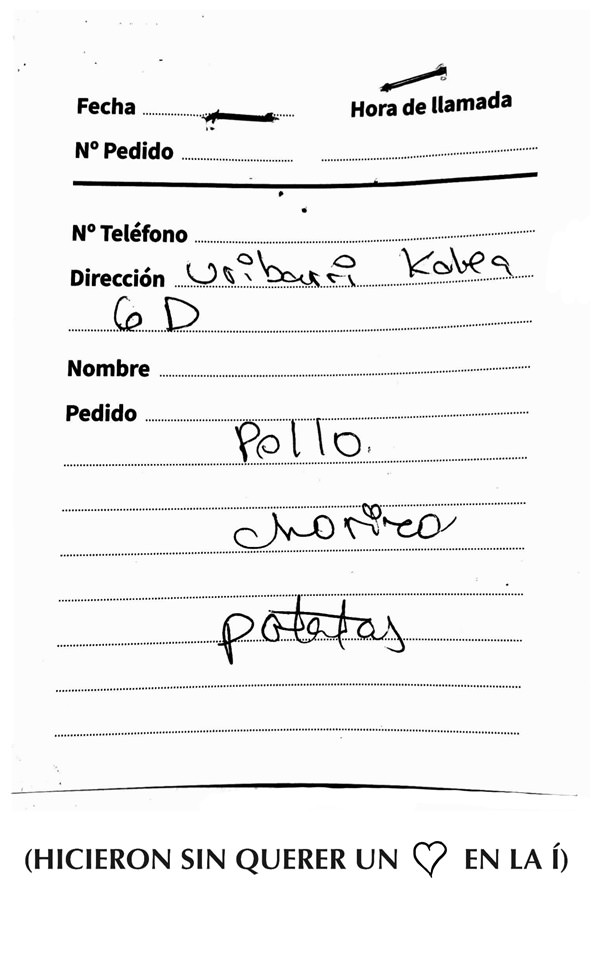 Fecha
Hora de llamada
Nº Pedido
Nº Teléfono
Dirección Uribarri Kalea
6 D
Nombre
Pedido
Pollo.
chorizo
patatas
(HICIERON SIN QUERER UN ♡ EN LA Í)